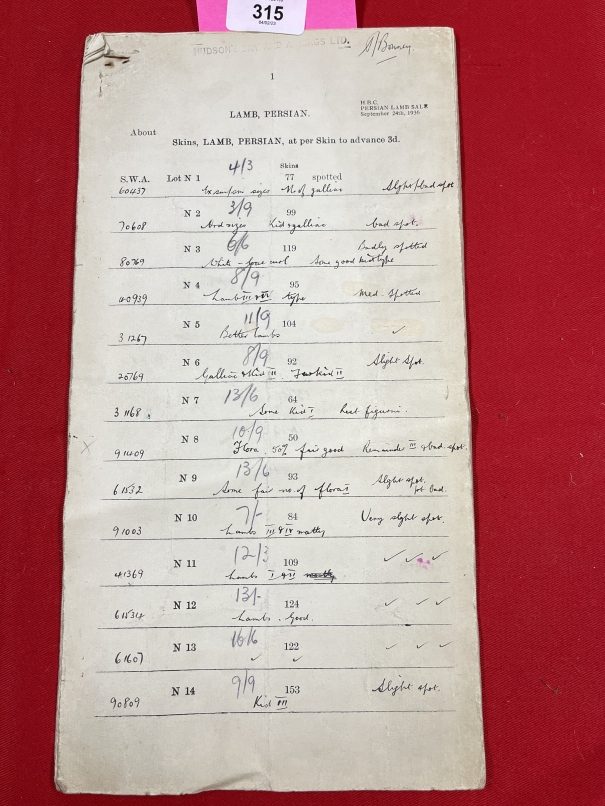 315
04/02/23
HUDSON'S BAY AND ANNINGS LTD.
1
H.B.C.
PERSIAN LAMB SALE
September 24th, 1936
LAMB, PERSIAN.
About
Skins, LAMB, PERSIAN, at per Skin to advance 3d.
4/3 Skins
S.W.A. Lot N 1 77 spotted
60437 sizes No of galliac Slight/bad spot
3/9
N 2 99
70608 sizes Kid & galliac bad spot.
6/6
N 3 119 Badly spotted
80769 White Some good Kid type
8/9
N 4 95
40939 Lambs III & IV type Med. Spotted
11/9
N 5 104 ✓
31267 Better lambs
8/9
N 6 92 Slight Spot.
20769 Galliac & Kid III. Kid II
13/6
N 7 64
31168 Some Kid I best figurini.
10/9
N 8 50
91409 Flora, 50% fair good Remainder III & bad spot.
13/6
N 9 93 Slight spot.
61532 Some fair no. of flora I bad.
7/-
N 10 84 Very slight spot.
91003 Lambs III & IV matty
12/3
N 11 109 ✓ ✓ ✓
41369 Lambs I & II matty
13/-
N 12 124 ✓ ✓ ✓
61534 Lambs. Good.
16/6
N 13 122 ✓ ✓ ✓
61607 ✓ ✓
9/9
N 14 153 Slight spot.
90809 Kid III